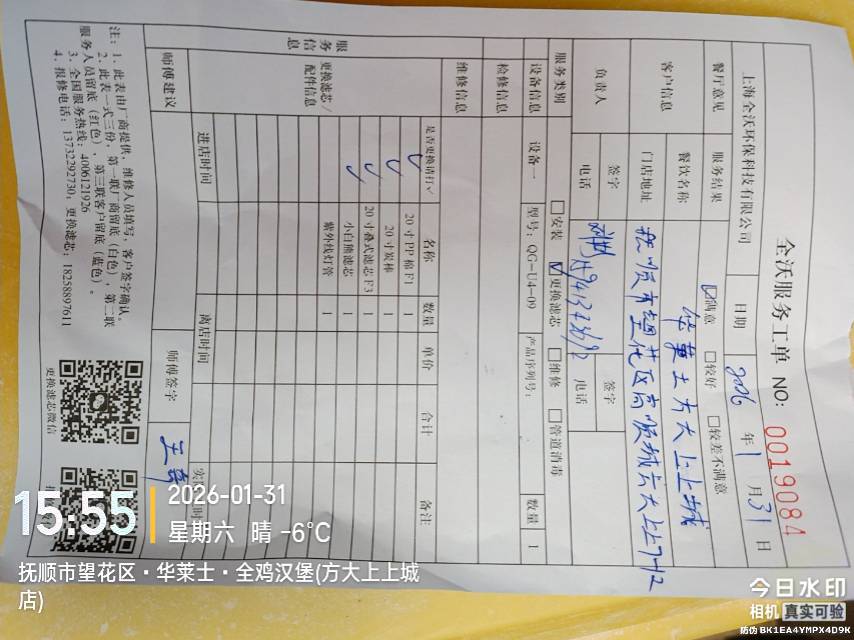 全沃服务工单 NO: 0019084
上海全沃环保科技有限公司 日期 2026 年 1 月 31 日
餐厅意见 服务结果 ☑满意 □较好 □较差不满意
客户信息 餐饮名称 华莱士方大上上城
门店地址 抚顺市望花区高
负责人 签字 签字
电话 电话
服务类别 □安装 ☑更换滤芯 □维修 □管道消毒
设备信息 设备一 型号: QG-U4-09 产品序列号: 数量 1
检修信息
维修信息
服务信息
更换滤芯/配件信息
是否更换请打√ 名称 数量 单价 合计 备注
✓ 20寸PP棉F1 1
✓ 20寸炭棒 1
✓ 20寸叠式滤芯F3 1
✓ 小白熊滤芯 1
紫外线灯管 1
进店时间 离店时间
师傅建议 师傅签字
注: 1、此表由厂商提供,维修人员填写,客户签字确认。
2、此表一式三份,第一联厂商留底(白色),第二联
服务人员留底(红色),第三联客户留底(蓝色)。
3、全国服务热线: 4006121926
4、报修电话: 13732292730; 更换滤芯: 18258897611
更换滤芯微信
15:55
2026-01-31
星期六 晴 -6℃
抚顺市望花区·华莱士·全鸡汉堡(方大上上城
店)
今日水印
相机 真实可验
防伪 BK1EA4YMPX4D9K